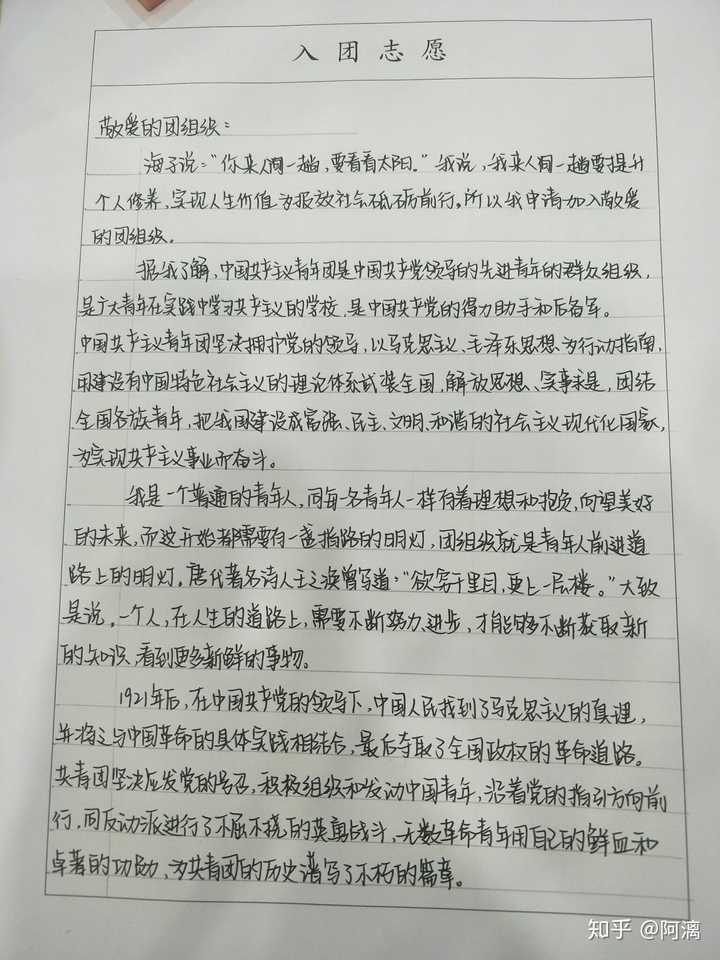 入团志愿
敬爱的团组织：
海子说："你来人间一趟，要看看太阳。"我说，我来人间一趟要提升
个人修养，实现人生价值，为报效社会砥砺前行。所以我申请加入敬爱
的团组织。
据我了解，中国共产主义青年团是中国共产党领导的先进青年的群众组织，
是广大青年在实践中学习共产主义的学校，是中国共产党的得力助手和后备军。
中国共产主义青年团坚决拥护党的领导，以马克思主义、毛泽东思想、为行动指南，
用建设有中国特色社会主义的理论体系武装全国，解放思想、实事求是，团结
全国各族青年，把我国建设成富强、民主、文明、和谐的社会主义现代化国家，
为实现共产主义事业而奋斗。
我是一个普通的青年人，同每一名青年人一样有着理想和抱负，向望美好
的未来，而这开始都需要有一盏指路的明灯，团组织就是青年人前进道
路上的明灯。唐代著名诗人王之涣曾写道："欲穷千里目，更上一层楼。"大致
是说，一个人，在人生的道路上，需要不断努力、进步，才能够不断获取新
的知识，看到更多新鲜的事物。
1921年后，在中国共产党的领导下，中国人民找到了马克思主义的真理，
并将之与中国革命的具体实践相结合，最后夺取了全国政权的革命道路。
共青团坚决应发党的号召，积极组织和发动中国青年，沿着党的指引方向前
行，同反动派进行了不屈不挠的英勇战斗，无数革命青年用自己的鲜血和
卓著的功勋，为共青团的历史谱写了不朽的篇章。
知乎 @阿漓